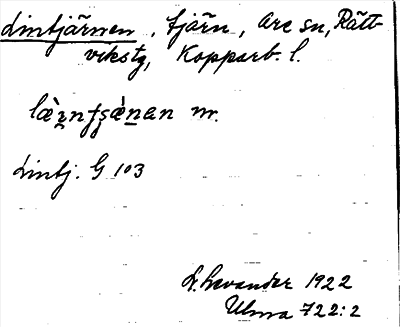 Lintjärnen, tjärn, Ore sn, Rätt-
vikstg, Kopparb. l.
nr.
Lintj. G 103
L. Levander 1922
Ulma 722:2